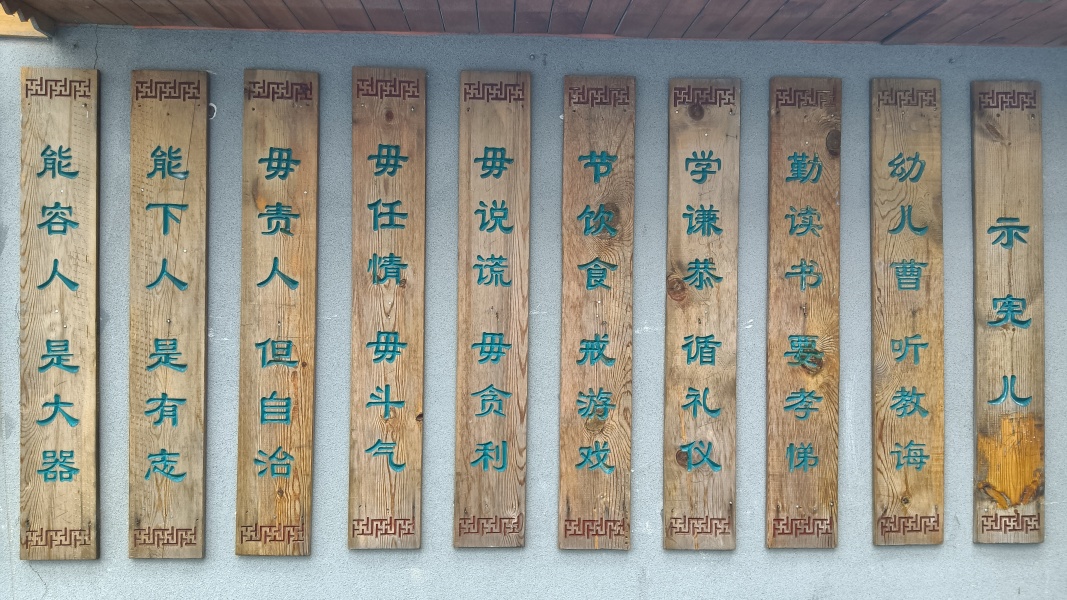 示宪儿
幼儿曹 听教诲
勤读书 要孝悌
学谦恭 循礼仪
节饮食 戒游戏
毋说谎 毋贪利
毋任情 毋斗气
毋责人 但自治
能下人 是有志
能容人 是大器